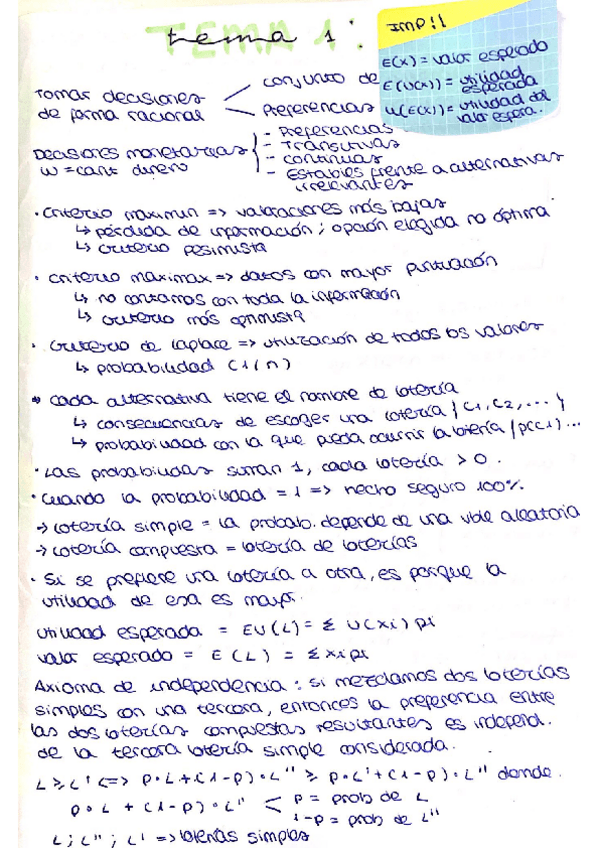 tema 1:
TEMA 1:
IMP!!
E(x) = valor esperado
E(U(x)) = utilidad esperada
U(E(x)) = utilidad del valor espera.
Tomar decisiones de forma racional
conjunto de
Preferencias
Decisiones monetarias
w = cant dinero
- Preferencias
- Transitivas
- continuas
- Estables frente a alternativas irrelevantes
· Criterio maximin => valoraciones más bajas
↳ pérdida de información; opción elegida no óptima
↳ criterio pesimista
· criterio maximax => datos con mayor puntuación
↳ no contamos con toda la información
↳ criterio más optimista
· Criterio de Laplace => utilización de todos los valores
↳ probabilidad (1/n)
* cada alternativa tiene el nombre de lotería
↳ consecuencias de escoger una lotería / C1, C2, ... }
↳ probabilidad con la que pueda ocurrir la lotería / p(C1) ...
· Las probabilidas suman 1, cada lotería > 0.
· Cuando la probabilidad = 1 => hecho seguro 100%
→ Lotería simple = la probab. depende de una vble aleatoria
→ Lotería compuesta = lotería de loterías
· Si se prefiere una lotería a otra, es porque la
utilidad de esa es mayor.
utilidad esperada = EU(L) = Σ U(xi) pi
valor esperado = E(L) = Σ xi pi
Axioma de independencia: si mezclamos dos loterías
simples con una tercera, entonces la preferencia entre
las dos loterías compuestas resultantes es independ.
de la tercera lotería simple considerada.
L ≥ L' <=> p·L + (1-p)·L'' ≥ p·L' + (1-p)·L'' donde.
p·L + (1-p)·L'' < p = prob de L
1-p = prob de L''
L; L''; L' => loterías simples